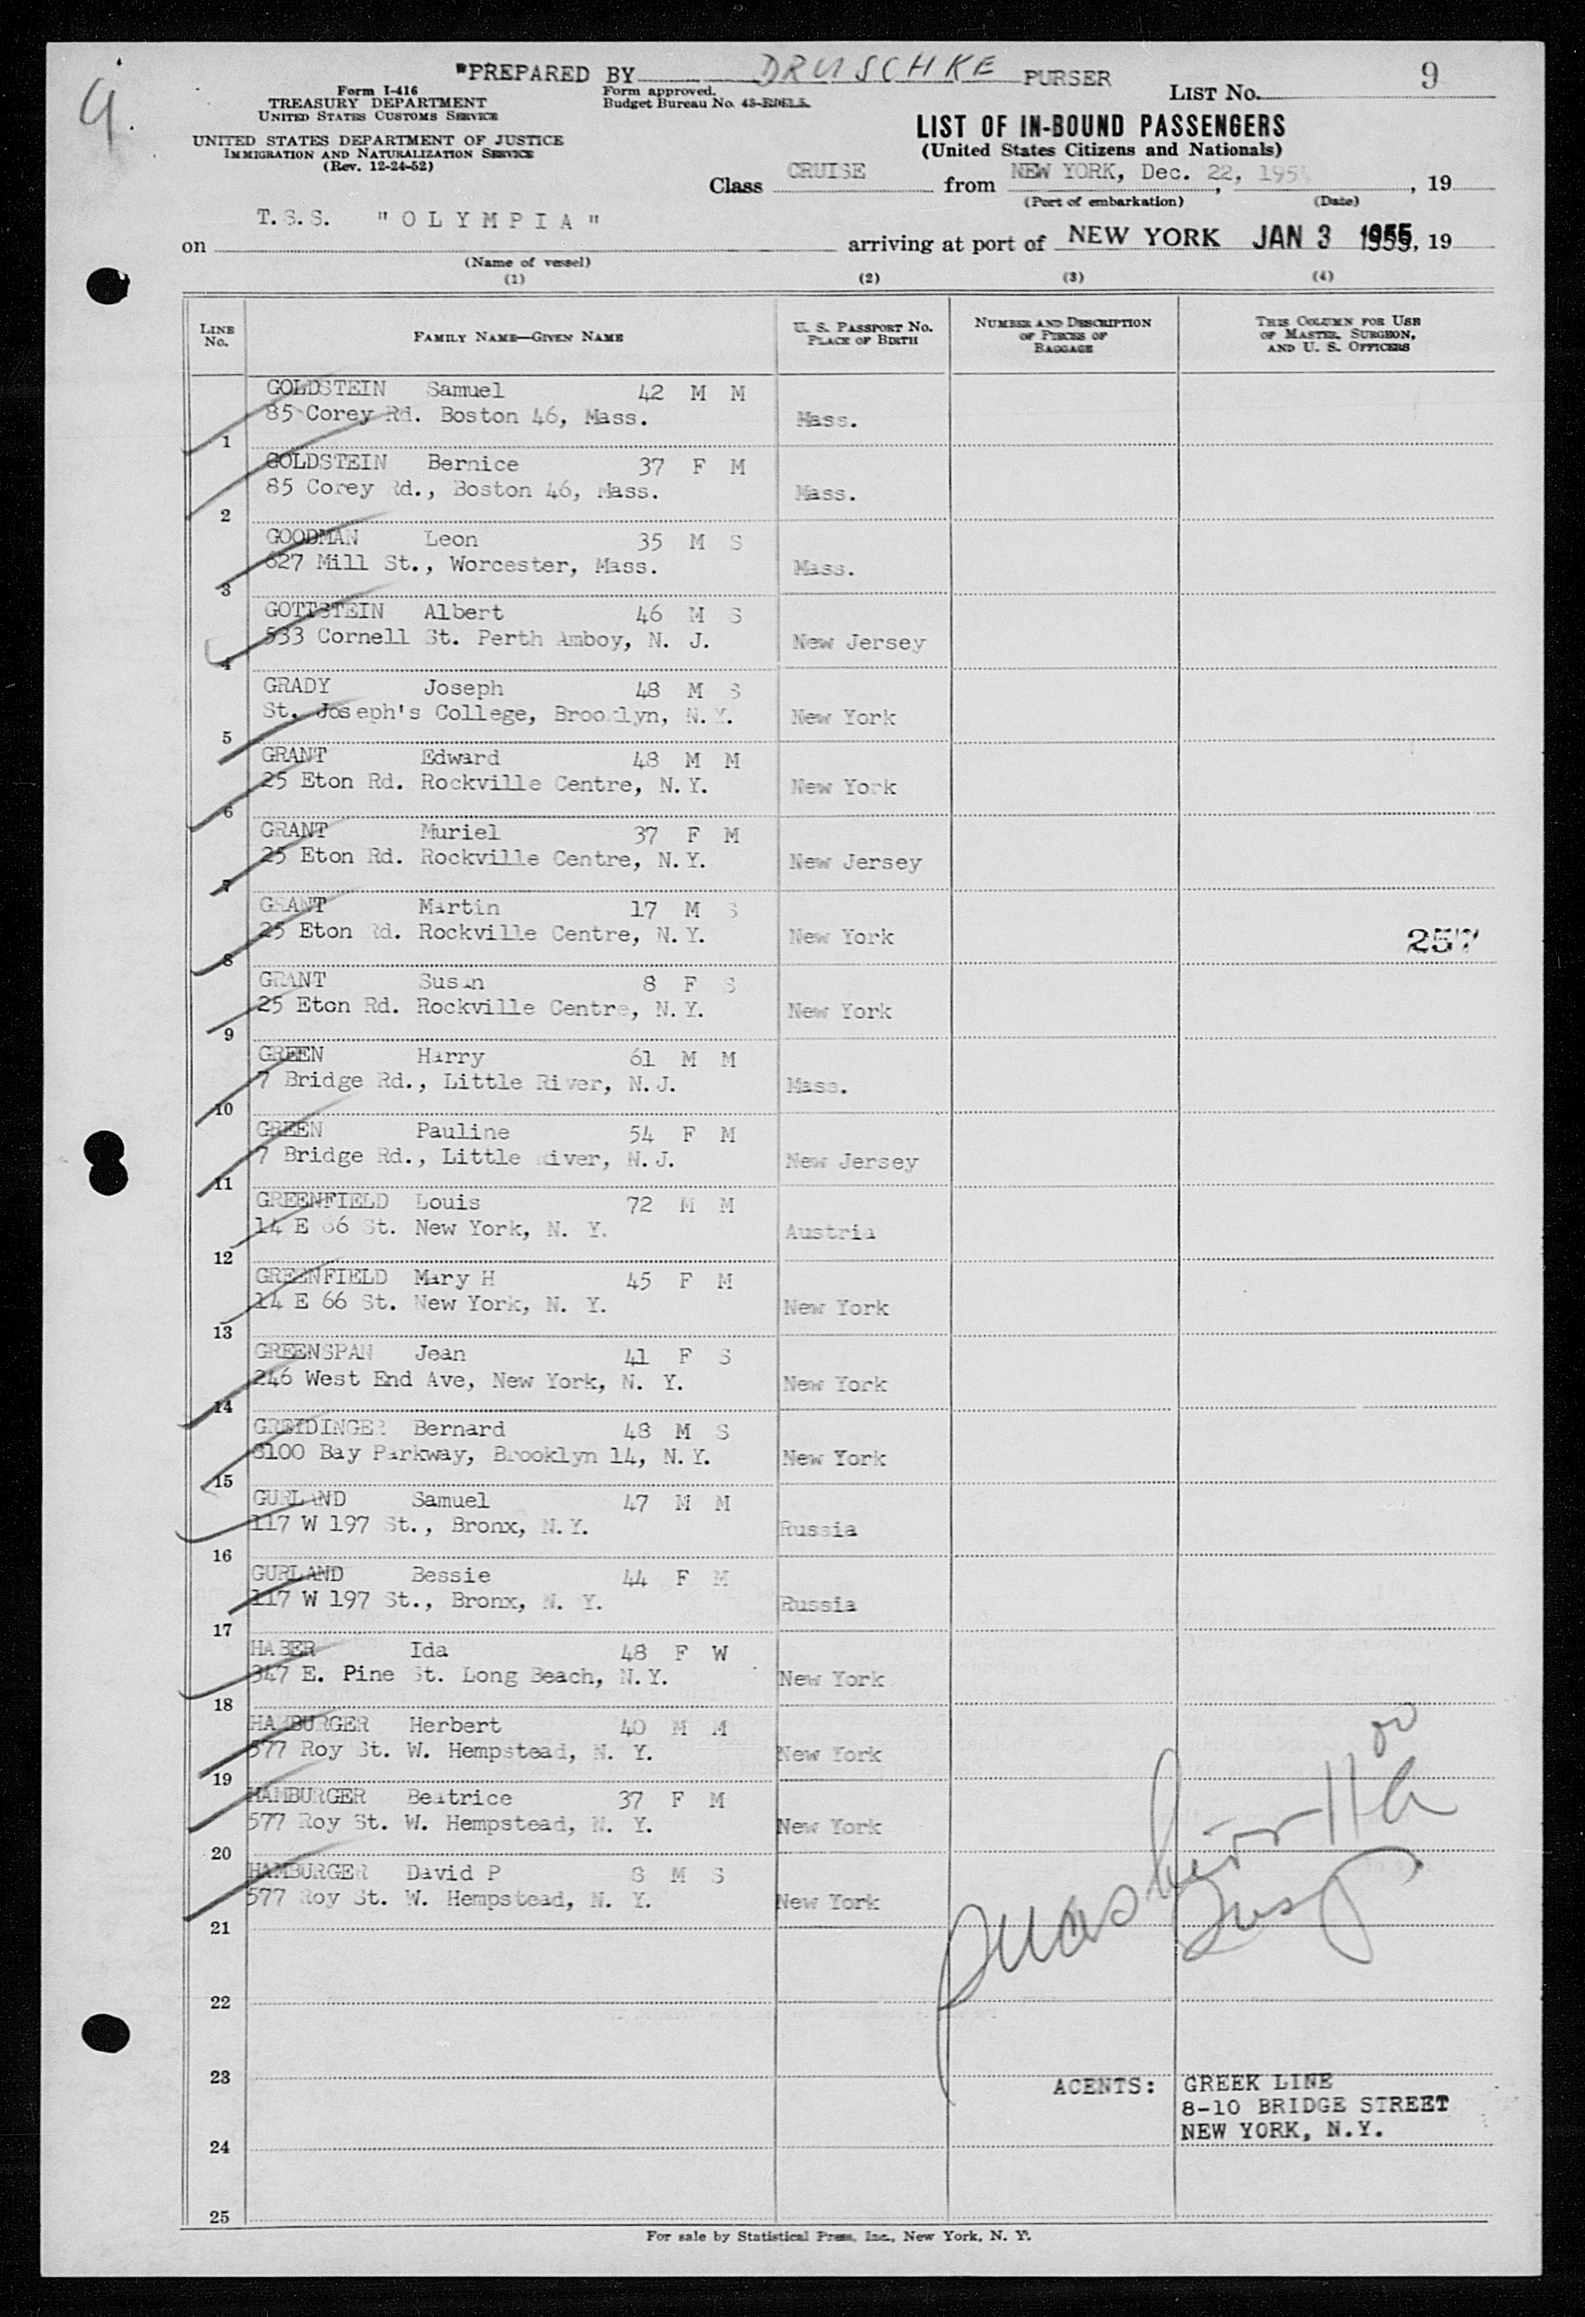 9.
*PREPARED BY DRUSCHKE PURSER
LIST No. 9
Form I-416
TREASURY DEPARTMENT
UNITED STATES CUSTOMS SERVICE
Form approved.
Budget Bureau No.
UNITED STATES DEPARTMENT OF JUSTICE
IMMIGRATION AND NATURALIZATION SERVICE
(Rev. 12-24-52)
LIST OF IN-BOUND PASSENGERS
(United States Citizens and Nationals)
Class CRUISE from NEW YORK, Dec. 22, 195 , 19
(Port of embarkation) (Date)
on T.S.S. "OLYMPIA" arriving at port of NEW YORK JAN 3 1955, 19
(Name of vessel)
(1) (2) (3) (4)
LINE No. FAMILY NAME—GIVEN NAME U. S. PASSPORT No. PLACE OF BIRTH NUMBER AND DESCRIPTION OF PIECES OF BAGGAGE THIS COLUMN FOR USE OF MASTER, SURGEON, AND U. S. OFFICERS
GOLDSTEIN Samuel 42 M M
1 85 Corey Rd. Boston 46, Mass. Mass.
GOLDSTEIN Bernice 37 F M
2 85 Corey Rd., Boston 46, Mass. Mass.
GOODMAN Leon 35 M S
3 627 Mill St., Worcester, Mass. Mass.
GOTTSTEIN Albert 46 M S
4 533 Cornell St. Perth Amboy, N. J. New Jersey
GRADY Joseph 48 M S
5 St. Joseph's College, Brooklyn, N.Y. New York
GRANT Edward 48 M M
6 25 Eton Rd. Rockville Centre, N.Y. New York
GRANT Muriel 37 F M
7 25 Eton Rd. Rockville Centre, N.Y. New Jersey
GRANT Martin 17 M S
8 25 Eton Rd. Rockville Centre, N.Y. New York 257
GRANT Susan 8 F S
9 25 Eton Rd. Rockville Centre, N.Y. New York
GREEN Harry 61 M M
10 7 Bridge Rd., Little River, N.J. Mass.
GREEN Pauline 54 F M
11 7 Bridge Rd., Little River, N.J. New Jersey
GREENFIELD Louis 72 M M
12 14 E 66 St. New York, N. Y. Austria
GREENFIELD Mary H 45 F M
13 14 E 66 St. New York, N. Y. New York
GREENSPAN Jean 41 F S
14 246 West End Ave, New York, N. Y. New York
GREIDINGER Bernard 48 M S
15 8100 Bay Parkway, Brooklyn 14, N.Y. New York
GURLAND Samuel 47 M M
16 117 W 197 St., Bronx, N.Y. Russia
GURLAND Bessie 44 F M
17 117 W 197 St., Bronx, N. Y. Russia
HABER Ida 48 F W
18 347 E. Pine St. Long Beach, N.Y. New York
HAMBURGER Herbert 40 M M
19 577 Roy St. W. Hempstead, N. Y. New York
HAMBURGER Beatrice 37 F M
20 577 Roy St. W. Hempstead, N. Y. New York
HAMBURGER David P 8 M S
21 577 Roy St. W. Hempstead, N. Y. New York
22
23
ACENTS: GREEK LINE
8-10 BRIDGE STREET
24 NEW YORK, N.Y.
25
For sale by Statistical Press, Inc., New York, N. Y.